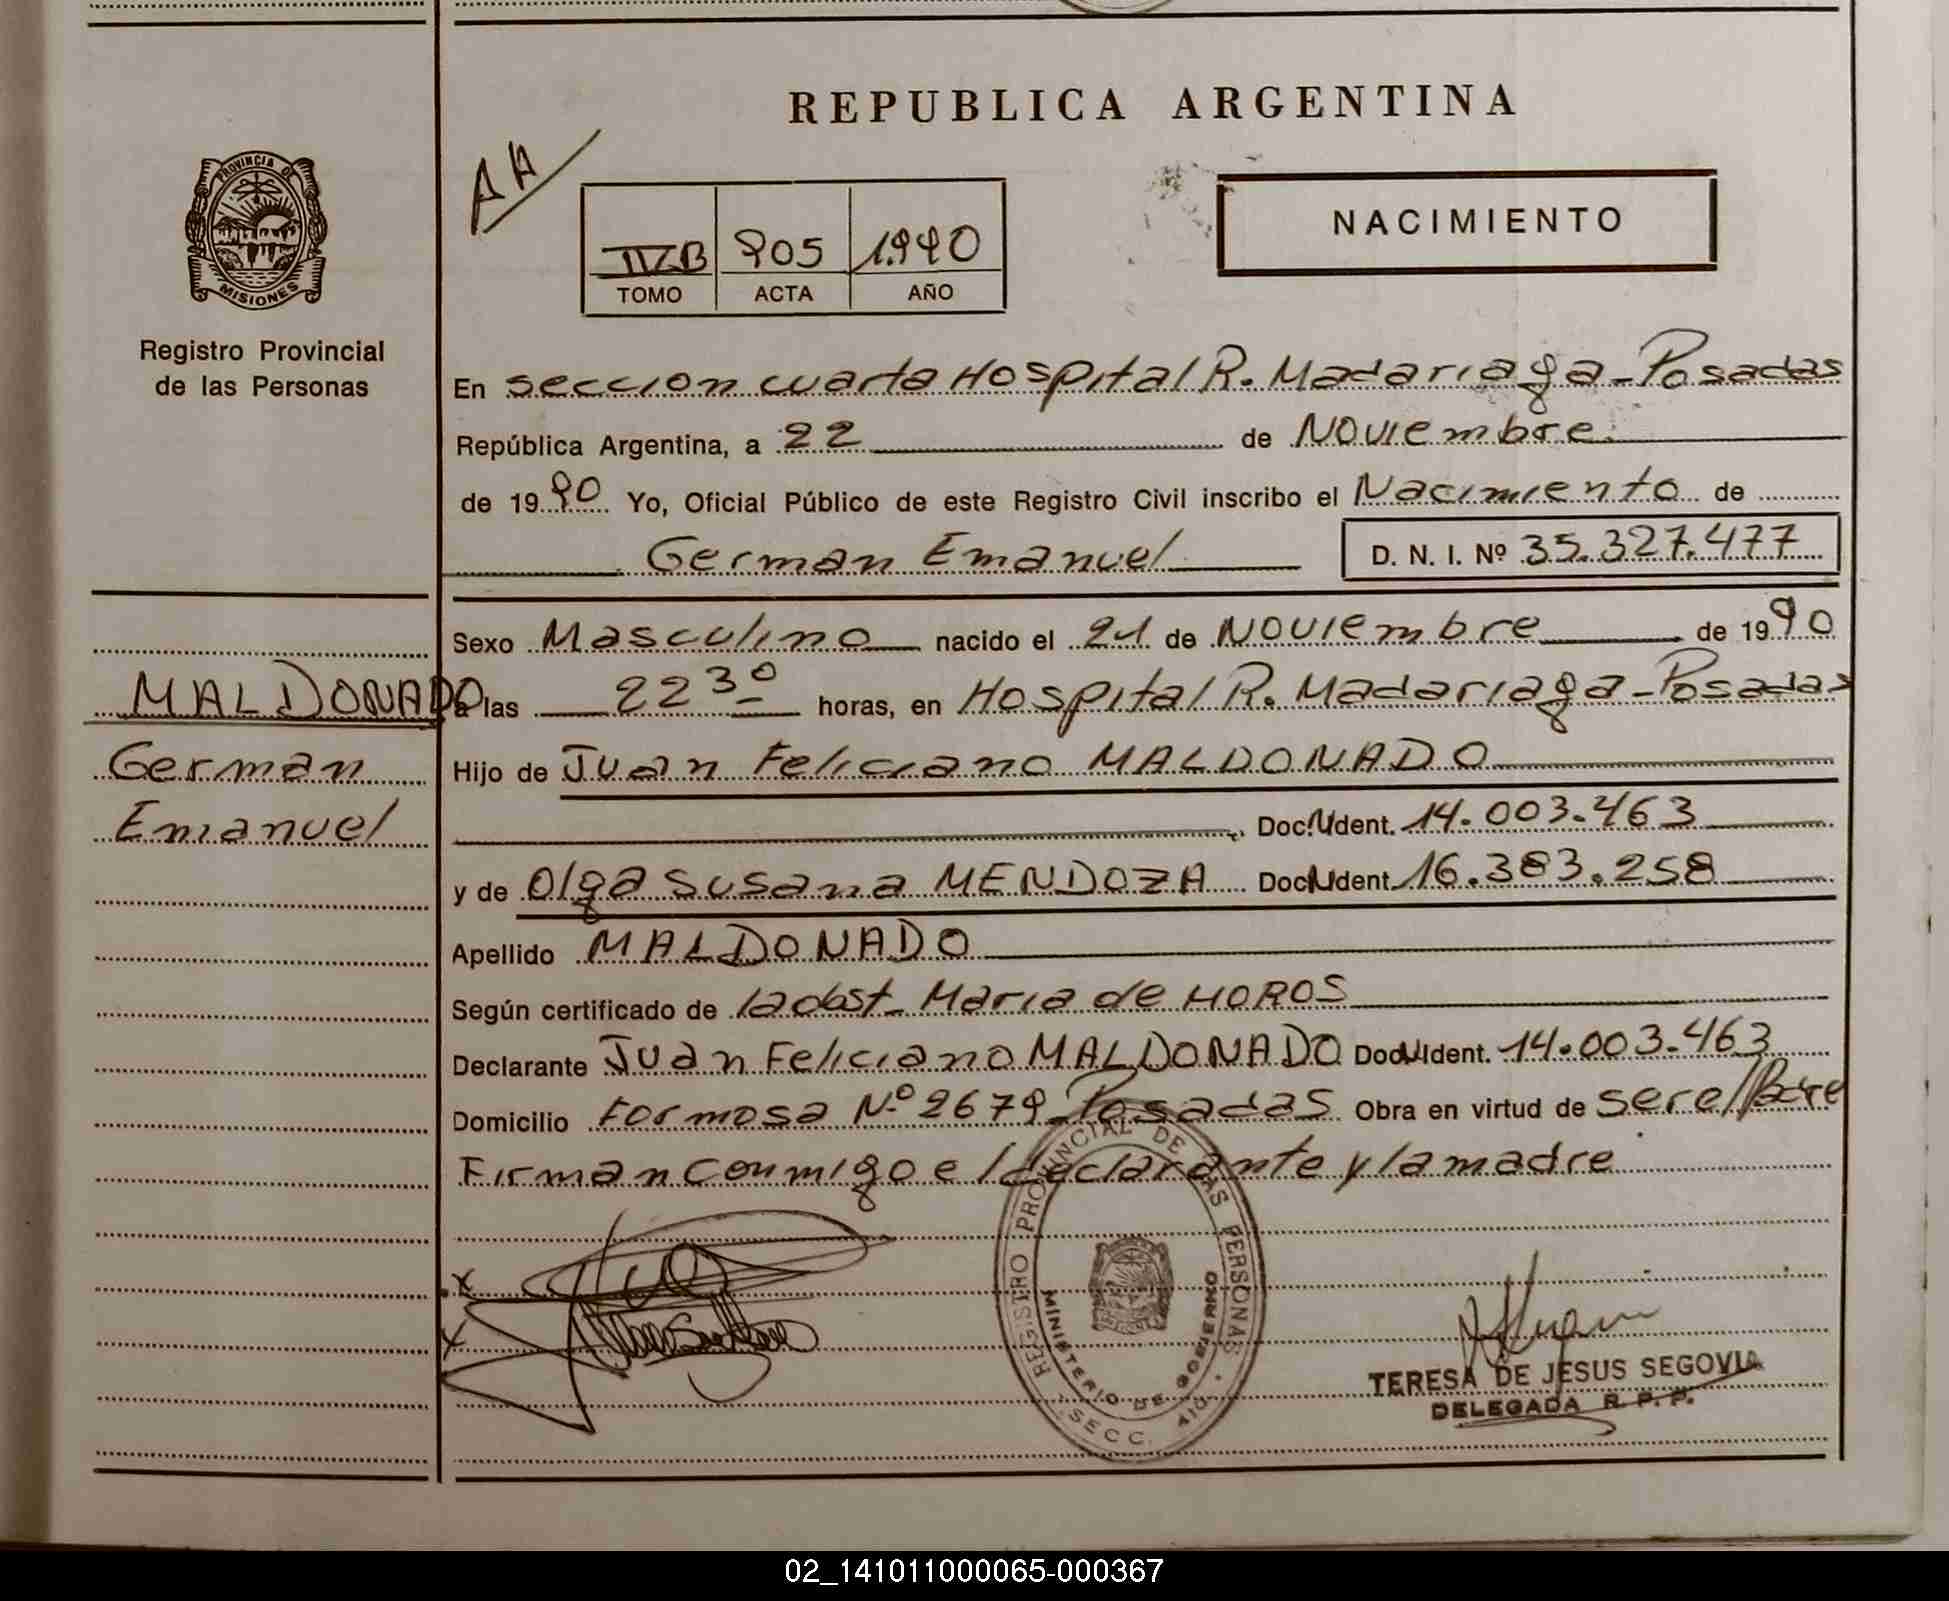 REPUBLICA ARGENTINA
AA
NACIMIENTO
905 1.990
TOMO ACTA AÑO
PROVINCIA DE MISIONES
Registro Provincial
de las Personas
En seccion cuarta Hospital R. Madariaga-Posadas
República Argentina, a 22 de Noviembre
de 1990 Yo, Oficial Público de este Registro Civil inscribo el Nacimiento de
German Emanuel D. N. I. Nº 35.327.477
Sexo Masculino nacido el 21 de Noviembre de 1990
MALDONADO
a las 22 30 horas, en Hospital R. Madariaga-Posadas
German
Hijo de Juan Feliciano MALDONADO
Emanuel
Doc. Ident. 14.003.463
y de Olga Susana MENDOZA Doc. Ident. 16.383.258
Apellido MALDONADO
Según certificado de la obst_ Maria de HOROS
Declarante Juan Feliciano MALDONADO Doc. Ident. 14.003.463
Domicilio Formosa Nº 2679_Posadas Obra en virtud de ser el Padre
Firman conmigo el declarante y la madre
REGISTRO PROVINCIAL DE LAS PERSONAS
MINISTERIO DE GOBIERNO
SECC. 4ta.
TERESA DE JESUS SEGOVIA
DELEGADA R. P. P.
02_141011000065-000367